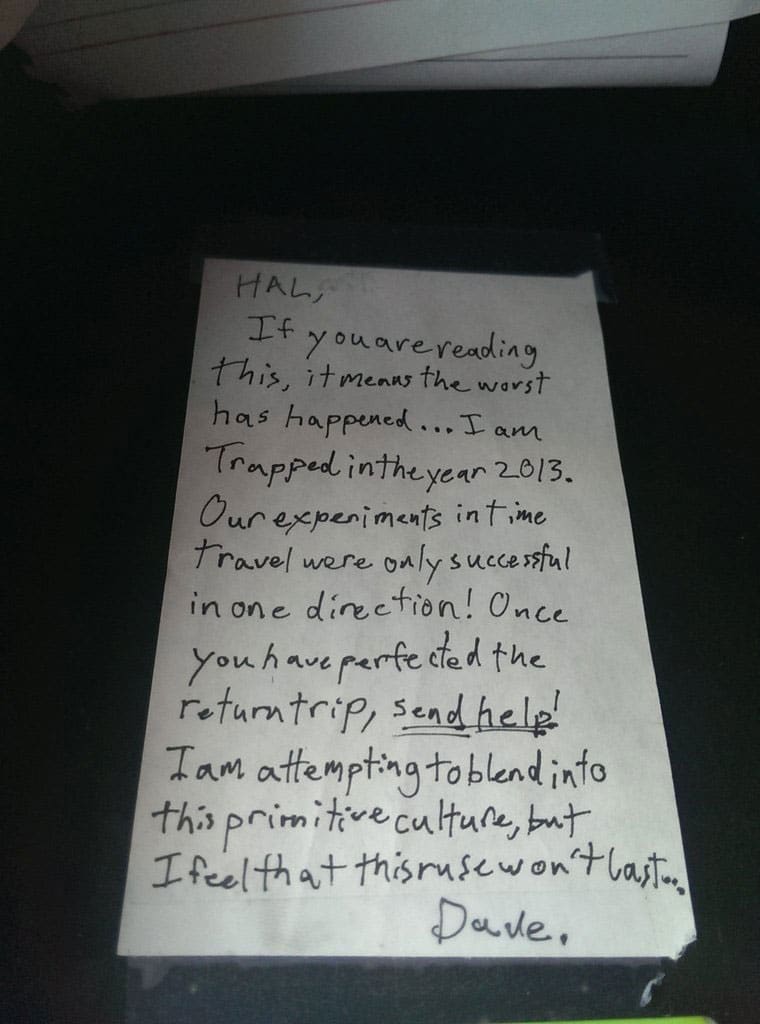 HAL,
If you are reading
this, it means the worst
has happened... I am
Trapped in the year 2013.
Our experiments in time
travel were only successful
in one direction! Once
you have perfected the
return trip, send help!
I am attempting to blend into
this primitive culture, but
I feel that this ruse won't last...
Dave.